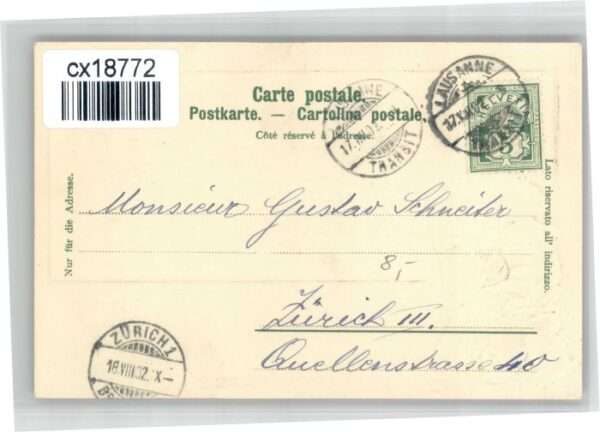 cx18772
Carte postale.
Postkarte. — Cartolina postale.
Côté réservé à l'adresse.
LAUSANNE
TRANSIT
LAUSANNE
TRANSIT
HELVETIA
5
Nur für die Adresse.
Lato riservato all' indirizzo.
Monsieur Gustav Schneiter
8,-
Zürich III.
Quellenstrasse 40
ZÜRICH 1
18.VIII.02. X—